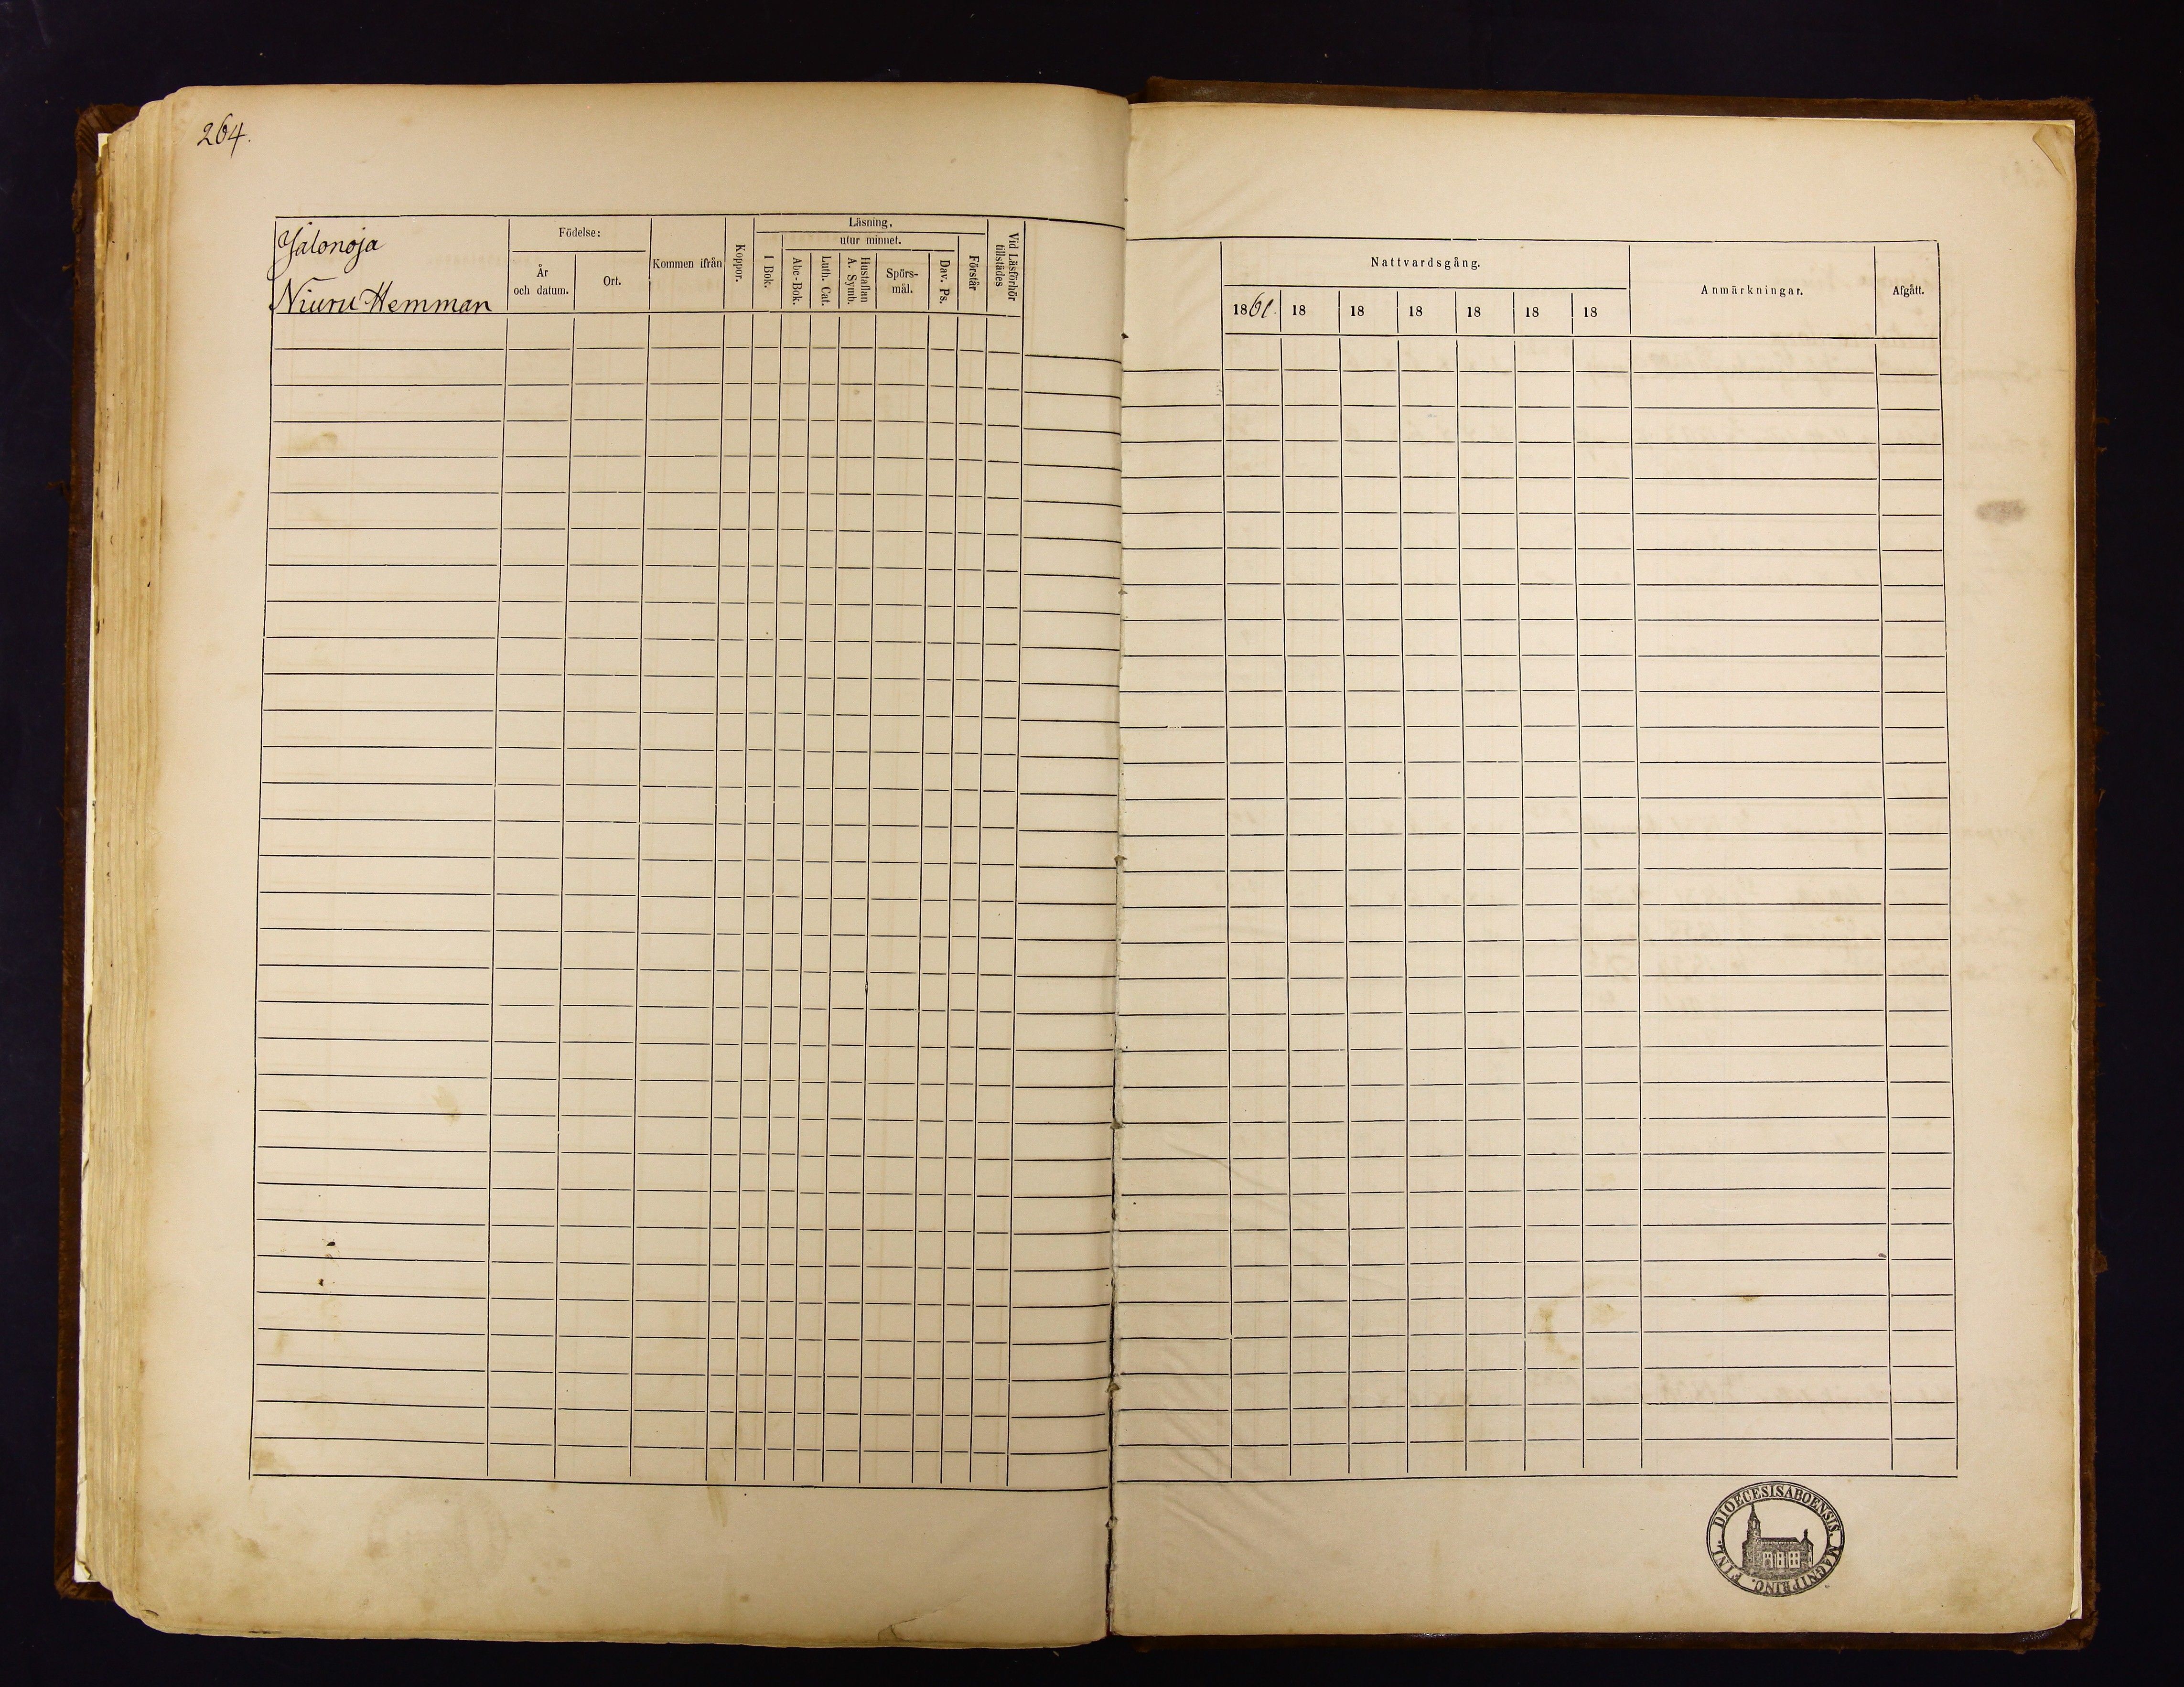 264.
Jalonoja
Niuru Hemman
Födelse:
År
och datum.
Ort.
Kommen ifrån
Koppor.
Läsning,
utur minnet.
I Bok.
Abc-Bok.
Luth. Cat.
Hustaflan
A. Symb.
Spörs-
mål.
Dav. Ps.
Förstår
Vid Läsförhör
tillstädes
Nattvardsgång.
1861.
18
18
18
18
18
18
Anmärkningar.
Afgått.
DIOECESISABOENSIS. MAGNIPRINC. FINL.